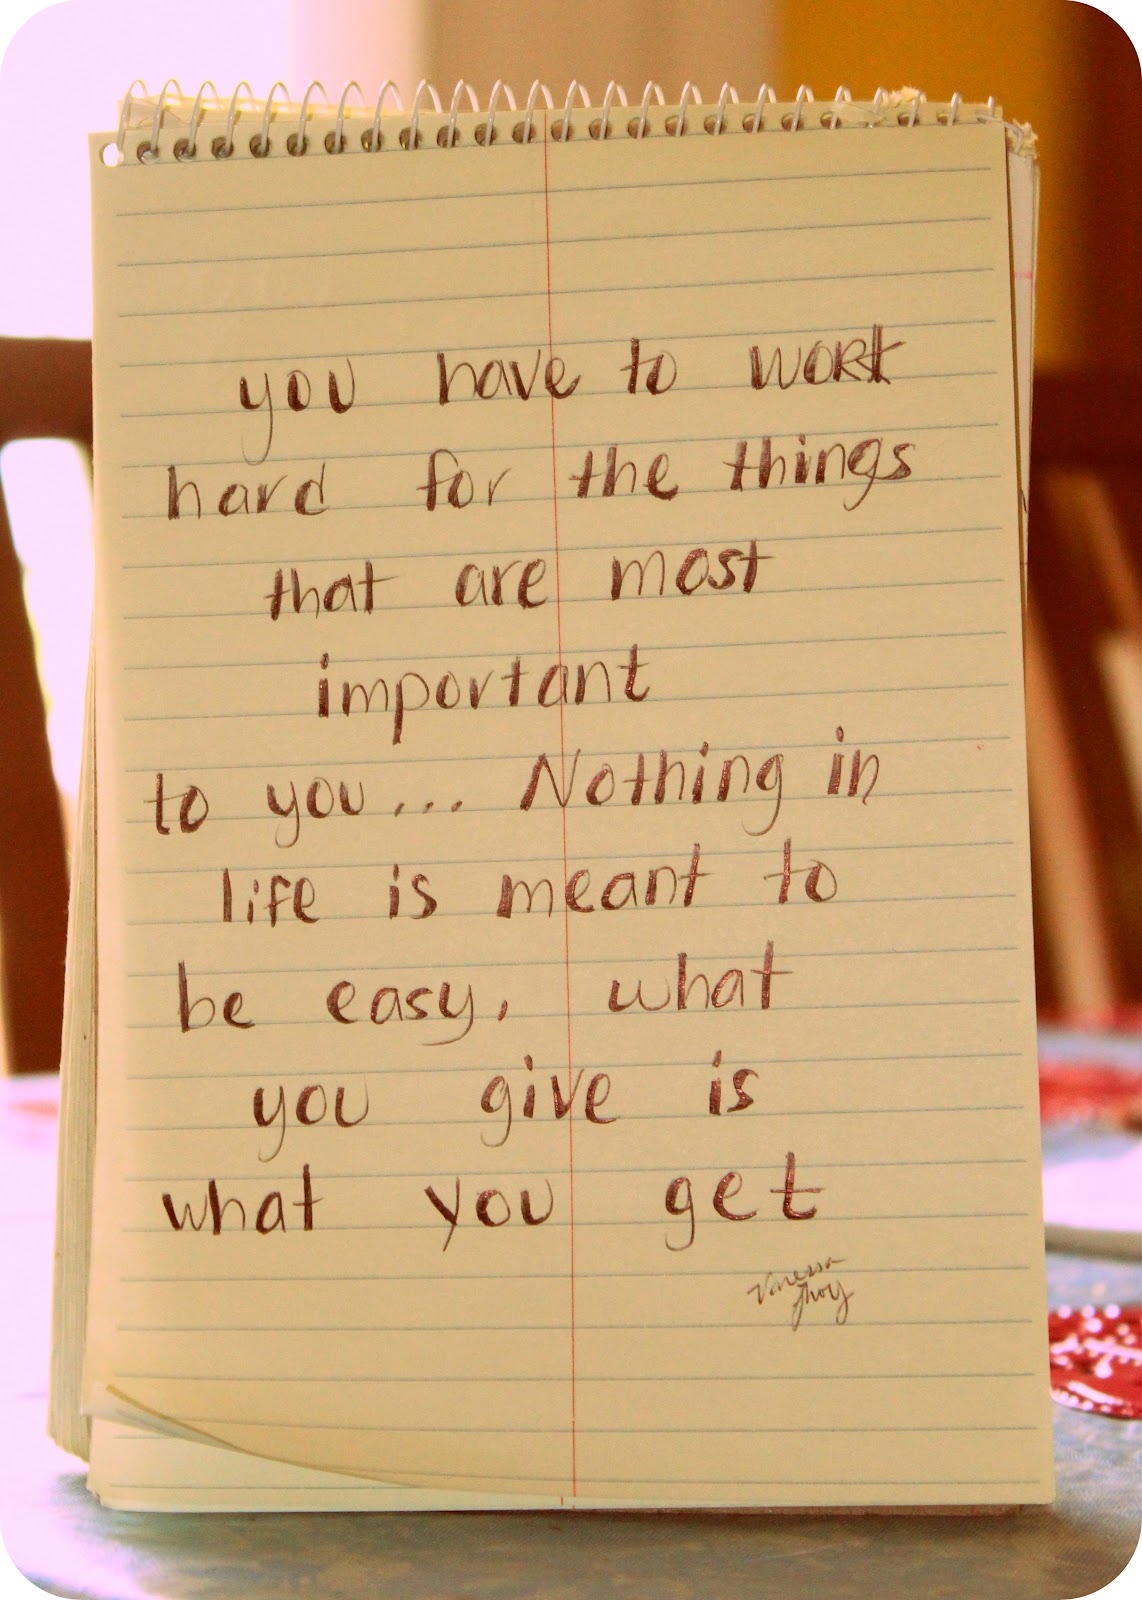 you have to work
hard for the things
that are most
important
to you... Nothing in
life is meant to
be easy, what
you give is
what you get
Vanessa
Jhoy